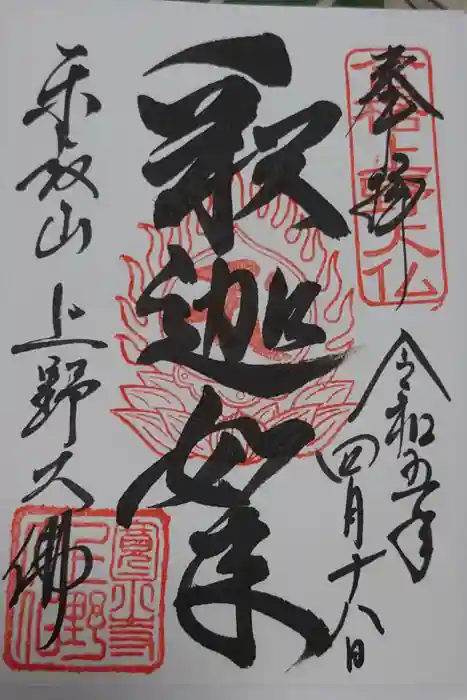 奉拝
令和五年
四月十八日
釈迦如来
東叡山 上野大佛
合格上野大仏
寛永寺
上野
大仏